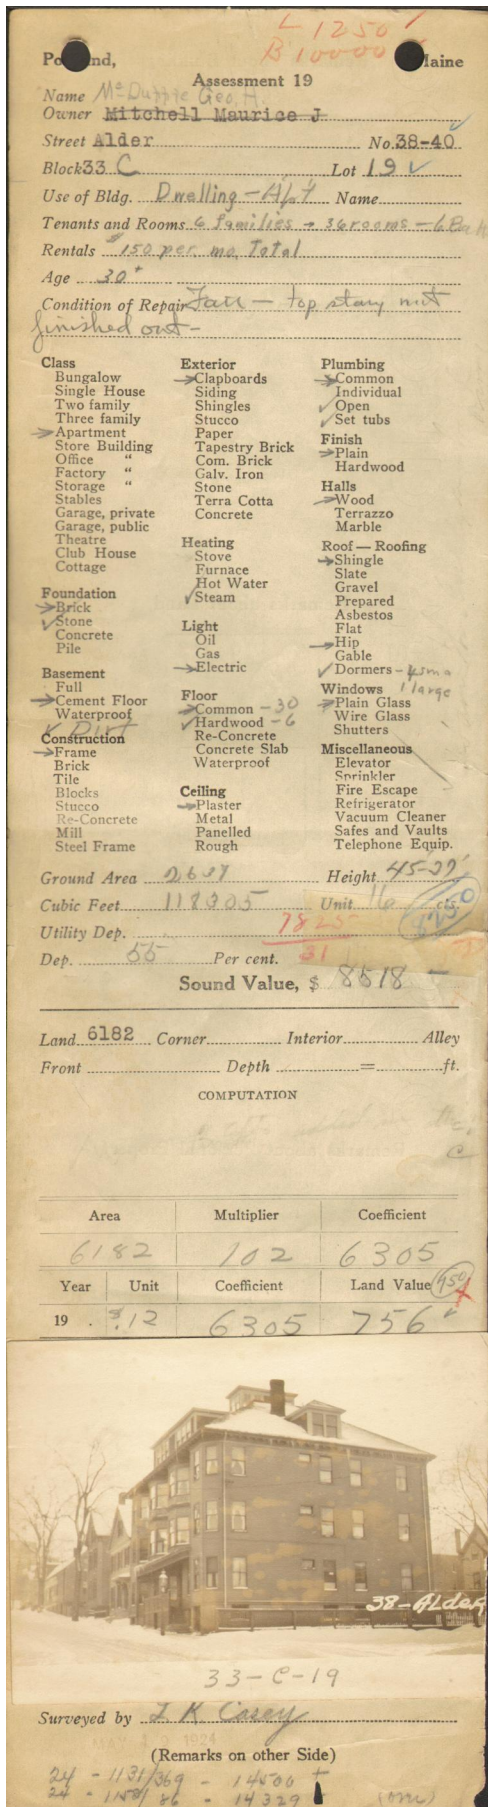 L 1250
B 10000
Portland, Maine
Assessment 19
Name Geo. H.
Owner Mitchell Maurice J
Street Alder No. 38-40
Block 33 C Lot 19 ✓
Use of Bldg. Dwelling - Apt Name
Tenants and Rooms 6 families - 36 rooms - 6 Bath
Rentals $150 per mo. Total
Age 30+
Condition of Repair Fair - top story not
finished out -
Class
Bungalow
Single House
Two family
Three family
→ Apartment
Store Building
Office "
Factory "
Storage "
Stables
Garage, private
Garage, public
Theatre
Club House
Cottage
Foundation
→ Brick
✓ Stone
Concrete
Pile
Basement
Full
→ Cement Floor
Waterproof
✓ Dirt
Construction
→ Frame
Brick
Tile
Blocks
Stucco
Re-Concrete
Mill
Steel Frame
Exterior
→ Clapboards
Siding
Shingles
Stucco
Paper
Tapestry Brick
Com. Brick
Galv. Iron
Stone
Terra Cotta
Concrete
Heating
Stove
Furnace
Hot Water
✓ Steam
Light
Oil
Gas
→ Electric
Floor
→ Common - 30
✓ Hardwood - 6
Re-Concrete
Concrete Slab
Waterproof
Ceiling
→ Plaster
Metal
Panelled
Rough
Plumbing
→ Common
Individual
✓ Open
✓ Set tubs
Finish
→ Plain
Hardwood
Halls
→ Wood
Terrazzo
Marble
Roof — Roofing
→ Shingle
Slate
Gravel
Prepared
Asbestos
Flat
→ Hip
Gable
✓ Dormers - 4 sma
1 large
Windows
→ Plain Glass
Wire Glass
Shutters
Miscellaneous
Elevator
Sprinkler
Fire Escape
Refrigerator
Vacuum Cleaner
Safes and Vaults
Telephone Equip.
Ground Area 2637 Height 45-37'
Cubic Feet 118305 Unit 16 cts.
8250
Utility Dep. 7825
Dep. 55 Per cent. 31
Sound Value, $ 8518 -
Land 6182 Corner Interior Alley
Front Depth = ft.
COMPUTATION
Area Multiplier Coefficient
6182 102 6305
Year Unit Coefficient Land Value 950
19 $.12 6305 756 ✓
38-Alder
33-C-19
Surveyed by K. Casey
MAY 1924
(Remarks on other Side)
24 - 1131/369 - 14500
24 - 86 - 14329